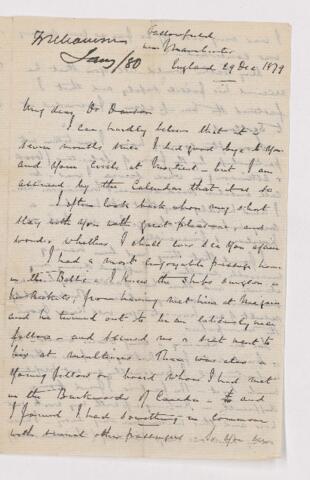 Williamson
Jany/80
Fallowfield
near Manchester
England 29 Dec 1879
My dear Dr Dawson
I can hardly believe that it is
seven months since I bid good bye to you
and your circle at Montreal - but I am
assured by the Calendar that it is so.
I often look back upon my short
stay with you with great pleasure, and
wonder whether I shall ever see you again
I had a most enjoyable passage home
in the Baltic - I knew the Ships surgeon
from having met him at Niagara
and he turned out to be an
fellow - and secured me a seat next to
his at mealtimes. There was also a
young fellow on board whom I had met
in the Backwoods of Canada - and
I found I had something in common
with several other passengers - so you see